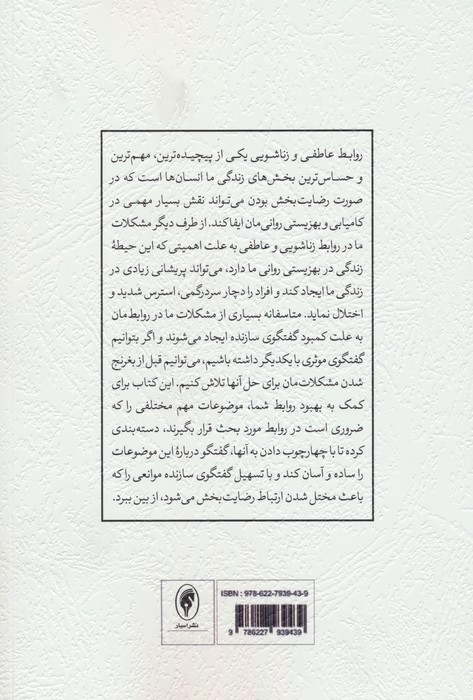 روابط عاطفی و زناشویی یکی از پیچیده‌ترین، مهم‌ترین
و حساس‌ترین بخش‌های زندگی ما انسان‌ها است که در
صورت رضایت‌بخش بودن می‌تواند نقش بسیار مهمی در
کامیابی و بهزیستی روانی‌مان ایفا کند. از طرف دیگر مشکلات
ما در روابط زناشویی و عاطفی به علت اهمیتی که این حیطهٔ
زندگی در بهزیستی روانی ما دارد، می‌تواند پریشانی زیادی در
زندگی ما ایجاد کند و افراد را دچار سردرگمی، استرس شدید و
اختلال نماید. متاسفانه بسیاری از مشکلات ما در روابط‌مان
به علت کمبود گفتگوی سازنده ایجاد می‌شوند و اگر بتوانیم
گفتگوی موثری با یکدیگر داشته باشیم، می‌توانیم قبل از بغرنج
شدن مشکلات‌مان برای حل آنها تلاش کنیم. این کتاب برای
کمک به بهبود روابط شما، موضوعات مهم مختلفی را که
ضروری است در روابط مورد بحث قرار بگیرند، دسته‌بندی
کرده تا با چهارچوب دادن به آنها، گفتگو دربارهٔ این موضوعات
را ساده و آسان کند و با تسهیل گفتگوی سازنده موانعی را که
باعث مختل شدن ارتباط رضایت‌بخش می‌شود، از بین ببرد.
ISBN : 978-622-7939-43-9
9 786227 939439
نشر اسبار